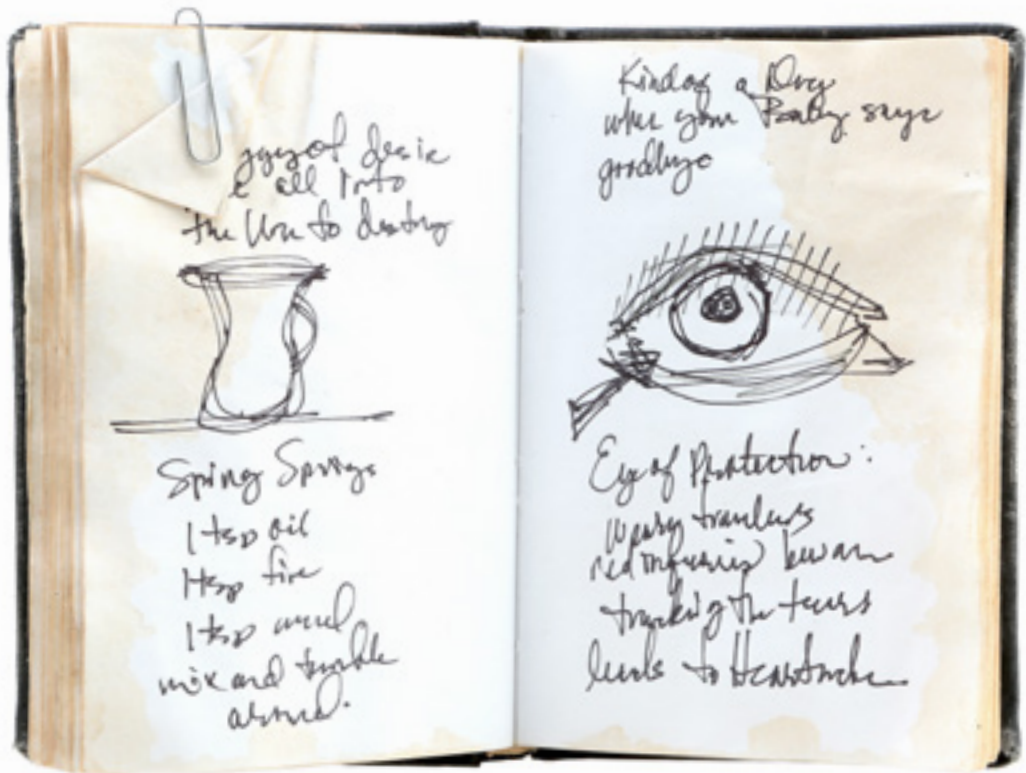 of desire
all Into
the Urn to destiny
Spring Springs
1 tsp oil
1 tsp fire
1 tsp
mix and tumble
around.
Kind of a Day
when your Baby says
goodbye
Eye of Protection:
Weary travelers
beware
tracking the tears
leads to Heartache